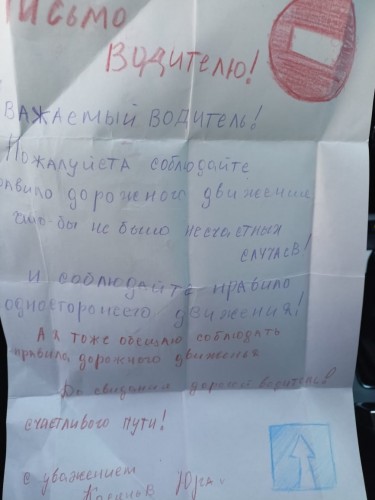 ПИСЬМО
ВОДИТЕЛЮ!
ВАЖАЕМЫЙ ВОДИТЕЛЬ!
Пожалуйста соблюдайте
равило дороженого движения
что-бы не было несчастных
СЛУЧАЕВ!
и соблюдайте правило
одностороннего движения!
А я тоже обещаю соблюдать
правила дорожного движенья
До свидания дорогой водитель!
счастливого пути!
с уважением
Юра